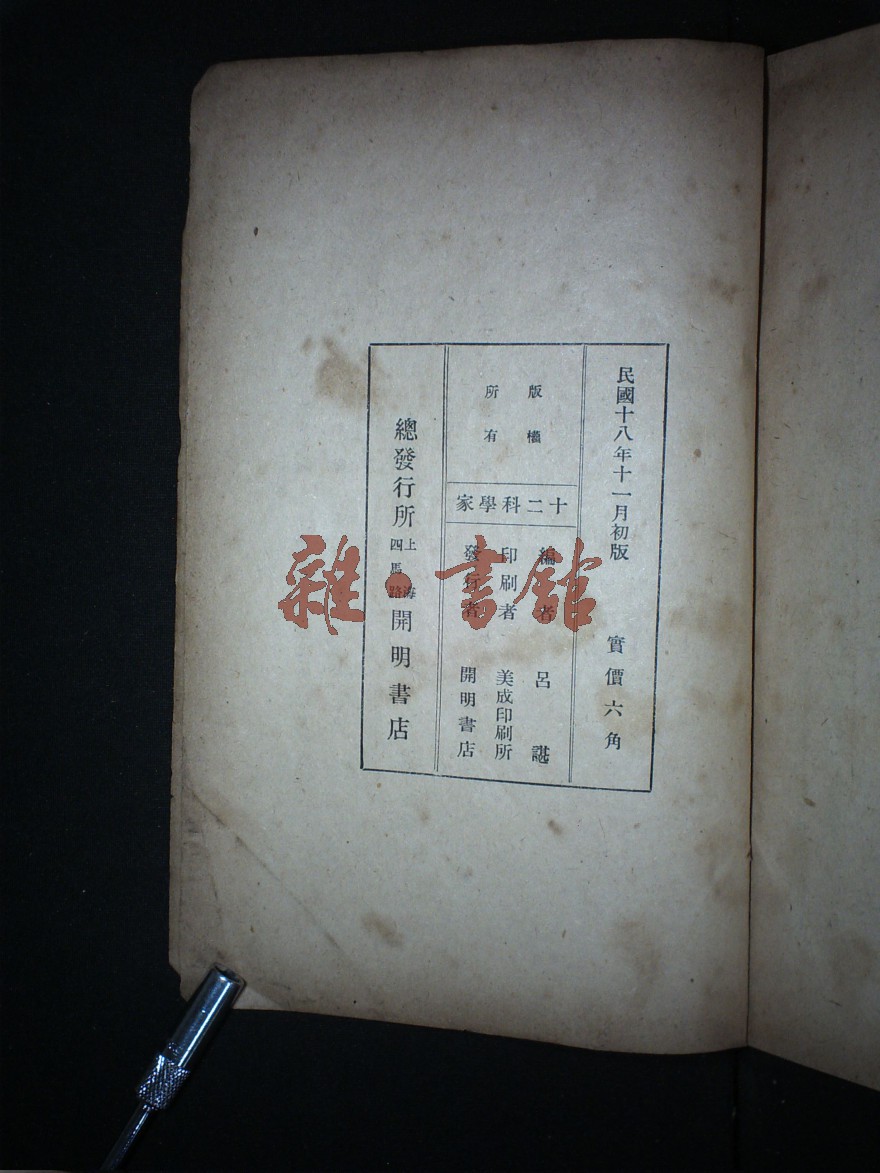 民國十八年十一月初版　實價六角
版權
所有
十二科學家
編者　呂諶
印刷者　美成印刷所
發行者　開明書店
總發行所　上海四馬路　開明書店
雜·書館